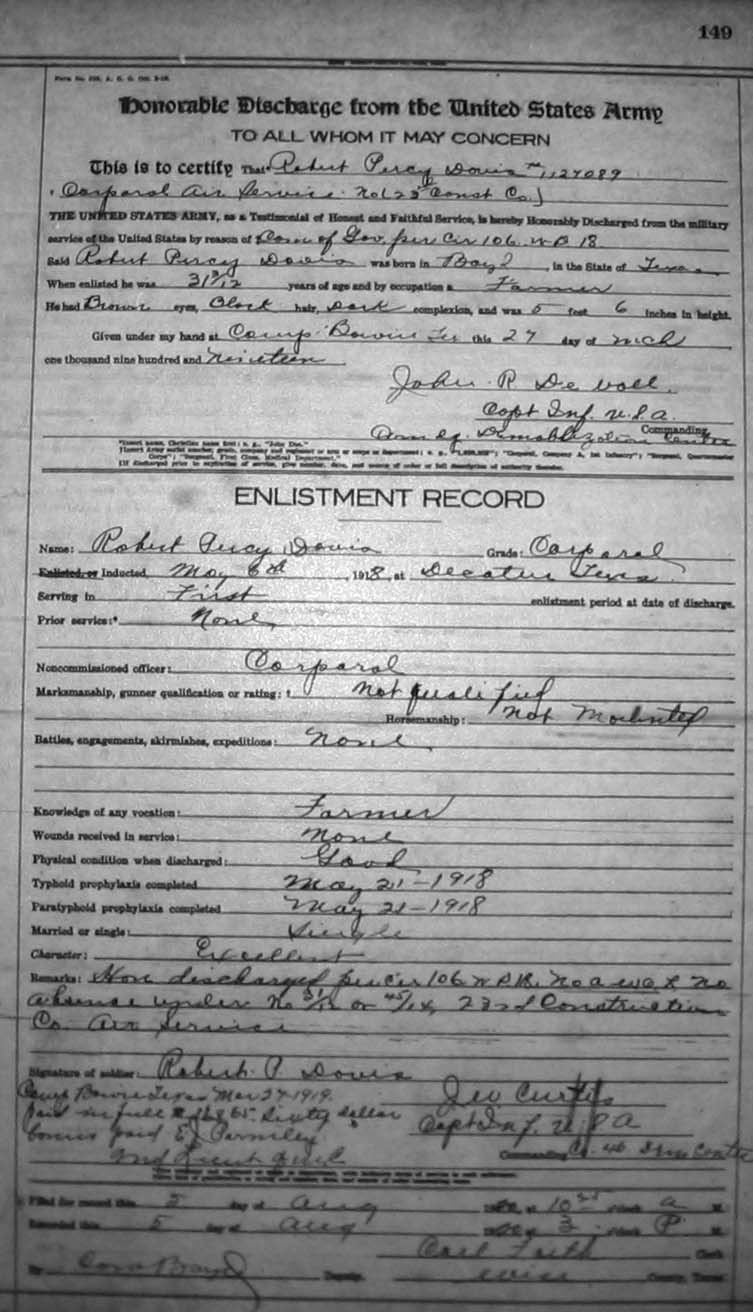 149
Honorable Discharge from the United States Army
TO ALL WHOM IT MAY CONCERN
This is to certify That* Robert Percy Davis
Corporal Air Service Const Co.)
THE UNITED STATES ARMY, as a Testimonial of Honest and Faithful Service, is hereby Honorably Discharged from the military
service of the United States by reason of Con of Gov per Cir 106 W D 18
Said Robert Percy Davis was born in Boyd, in the State of Texas
When enlisted he was 31 3/12 years of age and by occupation a Farmer
He had Brown eyes, Black hair, Dark complexion, and was 5 feet 6 inches in height.
Given under my hand at Camp Bowie Tex this 27 day of Mch
one thousand nine hundred and Nineteen
John R De
Capt Inf. U.S.A.
Commanding.
Demobilization Centre
*Insert name, Christian name first; e. g., "John Doe."
ENLISTMENT RECORD
Name: Robert Percy Davis Grade: Corporal
Enlisted, or Inducted, May 6th, 1918, at Decatur Texas
Serving in First enlistment period at date of discharge.
Prior service:* None
Noncommissioned officer: Corporal
Marksmanship, gunner qualification or rating: † Not qualified
Horsemanship: Not Mounted
Battles, engagements, skirmishes, expeditions: None
Knowledge of any vocation: Farmer
Wounds received in service: None
Physical condition when discharged: Good
Typhoid prophylaxis completed May 21-1918
Paratyphoid prophylaxis completed May 21-1918
Married or single: Single
Character: Excellent
Remarks: Hon discharged per Cir 106 W D 18. No a w o l no
absence under No 31/12 or 45/14, 23rd Construction
Co. Air Service
Signature of soldier: Robert P. Davis
Camp Bowie Texas Mar 27-1919. Geo Curtis
Paid in full Sixty dollar Capt Inf. U S A
bonus paid E J Parmley Commanding
Filed for record this 5 day of Aug at 10 o'clock a M.
Recorded this 5 day of Aug at 3 o'clock P M.
Carl Faith Clerk
By Cora Deputy Wise County, Texas